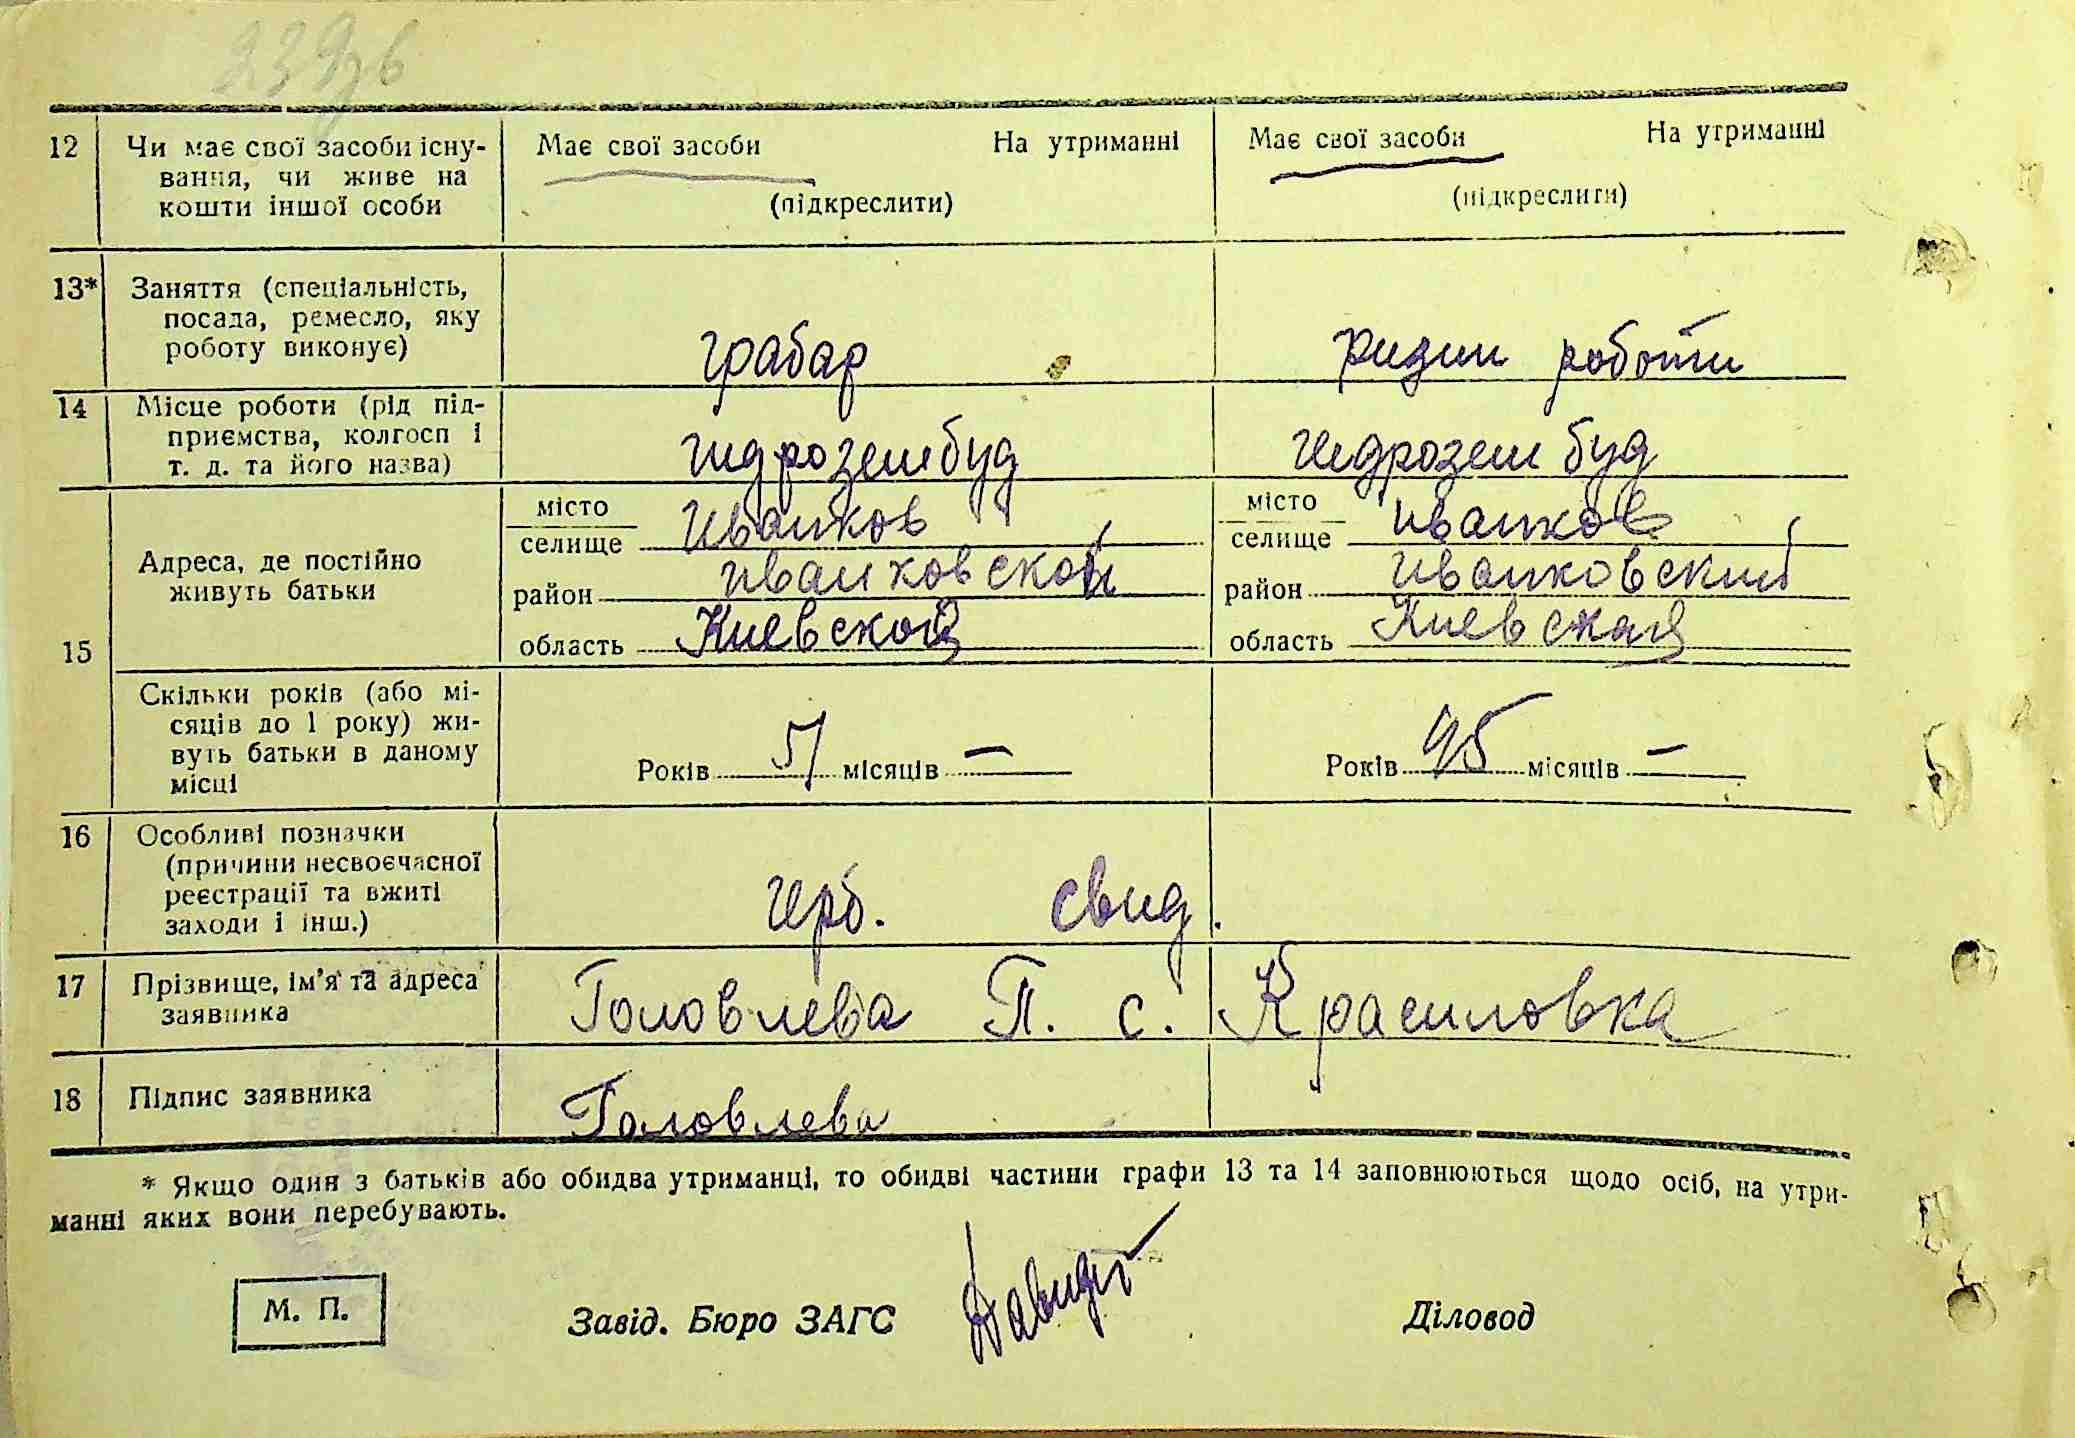 12 Чи має свої засоби існу- Має свої засоби На утриманні Має свої засоби На утриманні
вання, чи живе на
кошти іншої особи (підкреслити) (підкреслити)
13* Заняття (спеціальність,
посада, ремесло, яку
роботу виконує) грабар ризни роботи
14 Місце роботи (рід під-
приємства, колгосп і
т. д. та його назва) гидрозембуд гидрозем буд
15 Адреса, де постійно
живуть батьки
місто
селище Иванков
район иванковской
область Киевской
місто
селище иванков
район иванковский
область Киевская
Скільки років (або мі-
сяців до 1 року) жи-
вуть батьки в даному
місці
Років місяців — Років місяців —
16 Особливі позначки
(причини несвоєчасної
реєстрації та вжиті
заходи і інш.)
герб. свид.
17 Прізвище, ім'я та адреса
заявника
Головлева П. с. Красиловка
18 Підпис заявника Головлева
* Якщо один з батьків або обидва утриманці, то обидві частини графи 13 та 14 заповнюються щодо осіб, на утри-
манні яких вони перебувають.
М. П. Завід. Бюро ЗАГС Діловод